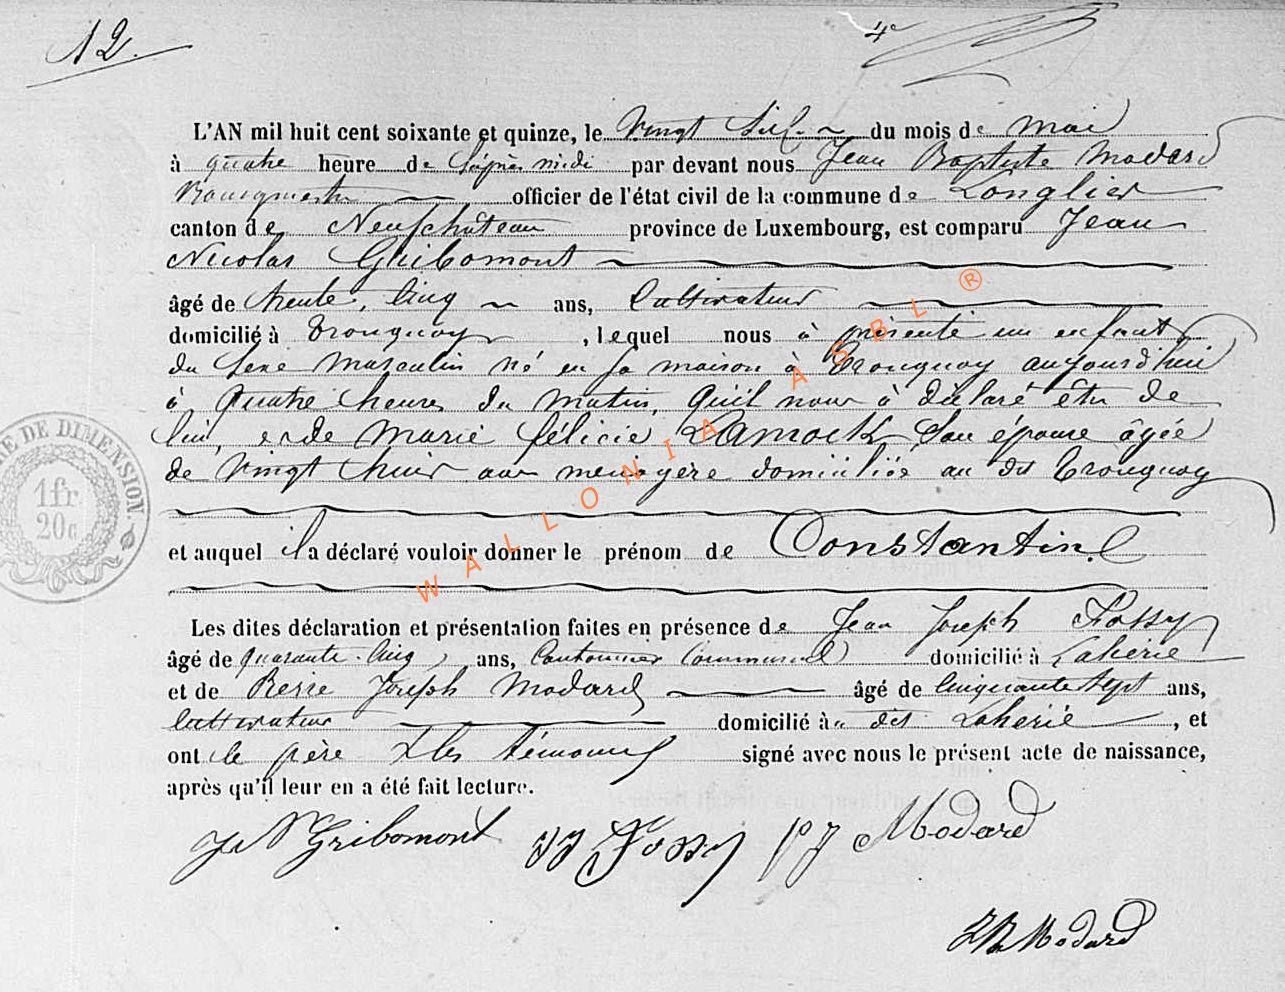 12.
4e
L'AN mil huit cent soixante et quinze, le Vingt Six du mois de Mai
à quatre heure de l'après midi par devant nous Jean Baptiste Modard
Bourgmestre officier de l'état civil de la commune de Longlier
canton de Neufchâteau province de Luxembourg, est comparu Jean
Nicolas Gribomont
âgé de trente, Cinq ans, Cultivateur
domicilié à Tronquoy, lequel nous à présenté un enfant
du Sexe Masculin né en sa maison à Tronquoy aujourd'hui
à quatre heures du matin, qu'il nous à déclaré être de
lui, et de Marie félicie Lamock Son épouse âgée
de Vingt huit ans menagere domiciliée au dit Tronquoy
et auquel il a déclaré vouloir donner le prénom de Constantin.
Les dites déclaration et présentation faites en présence de Jean Joseph Fossy
âgé de quarante-Cinq, ans, Cantonnier Communal domicilié à Laherie
et de Pierre Joseph Modard âgé de Cinquante Sept ans,
Cultivateur domicilié à dit Laherie, et
ont le père & les témoins signé avec nous le présent acte de naissance,
après qu'il leur en a été fait lecture.
J N Gribomont JJ Fossy PJ Modard
JB Modard
E DE DIMENSION.
1fr
20c
WALLONIA ASBL ®